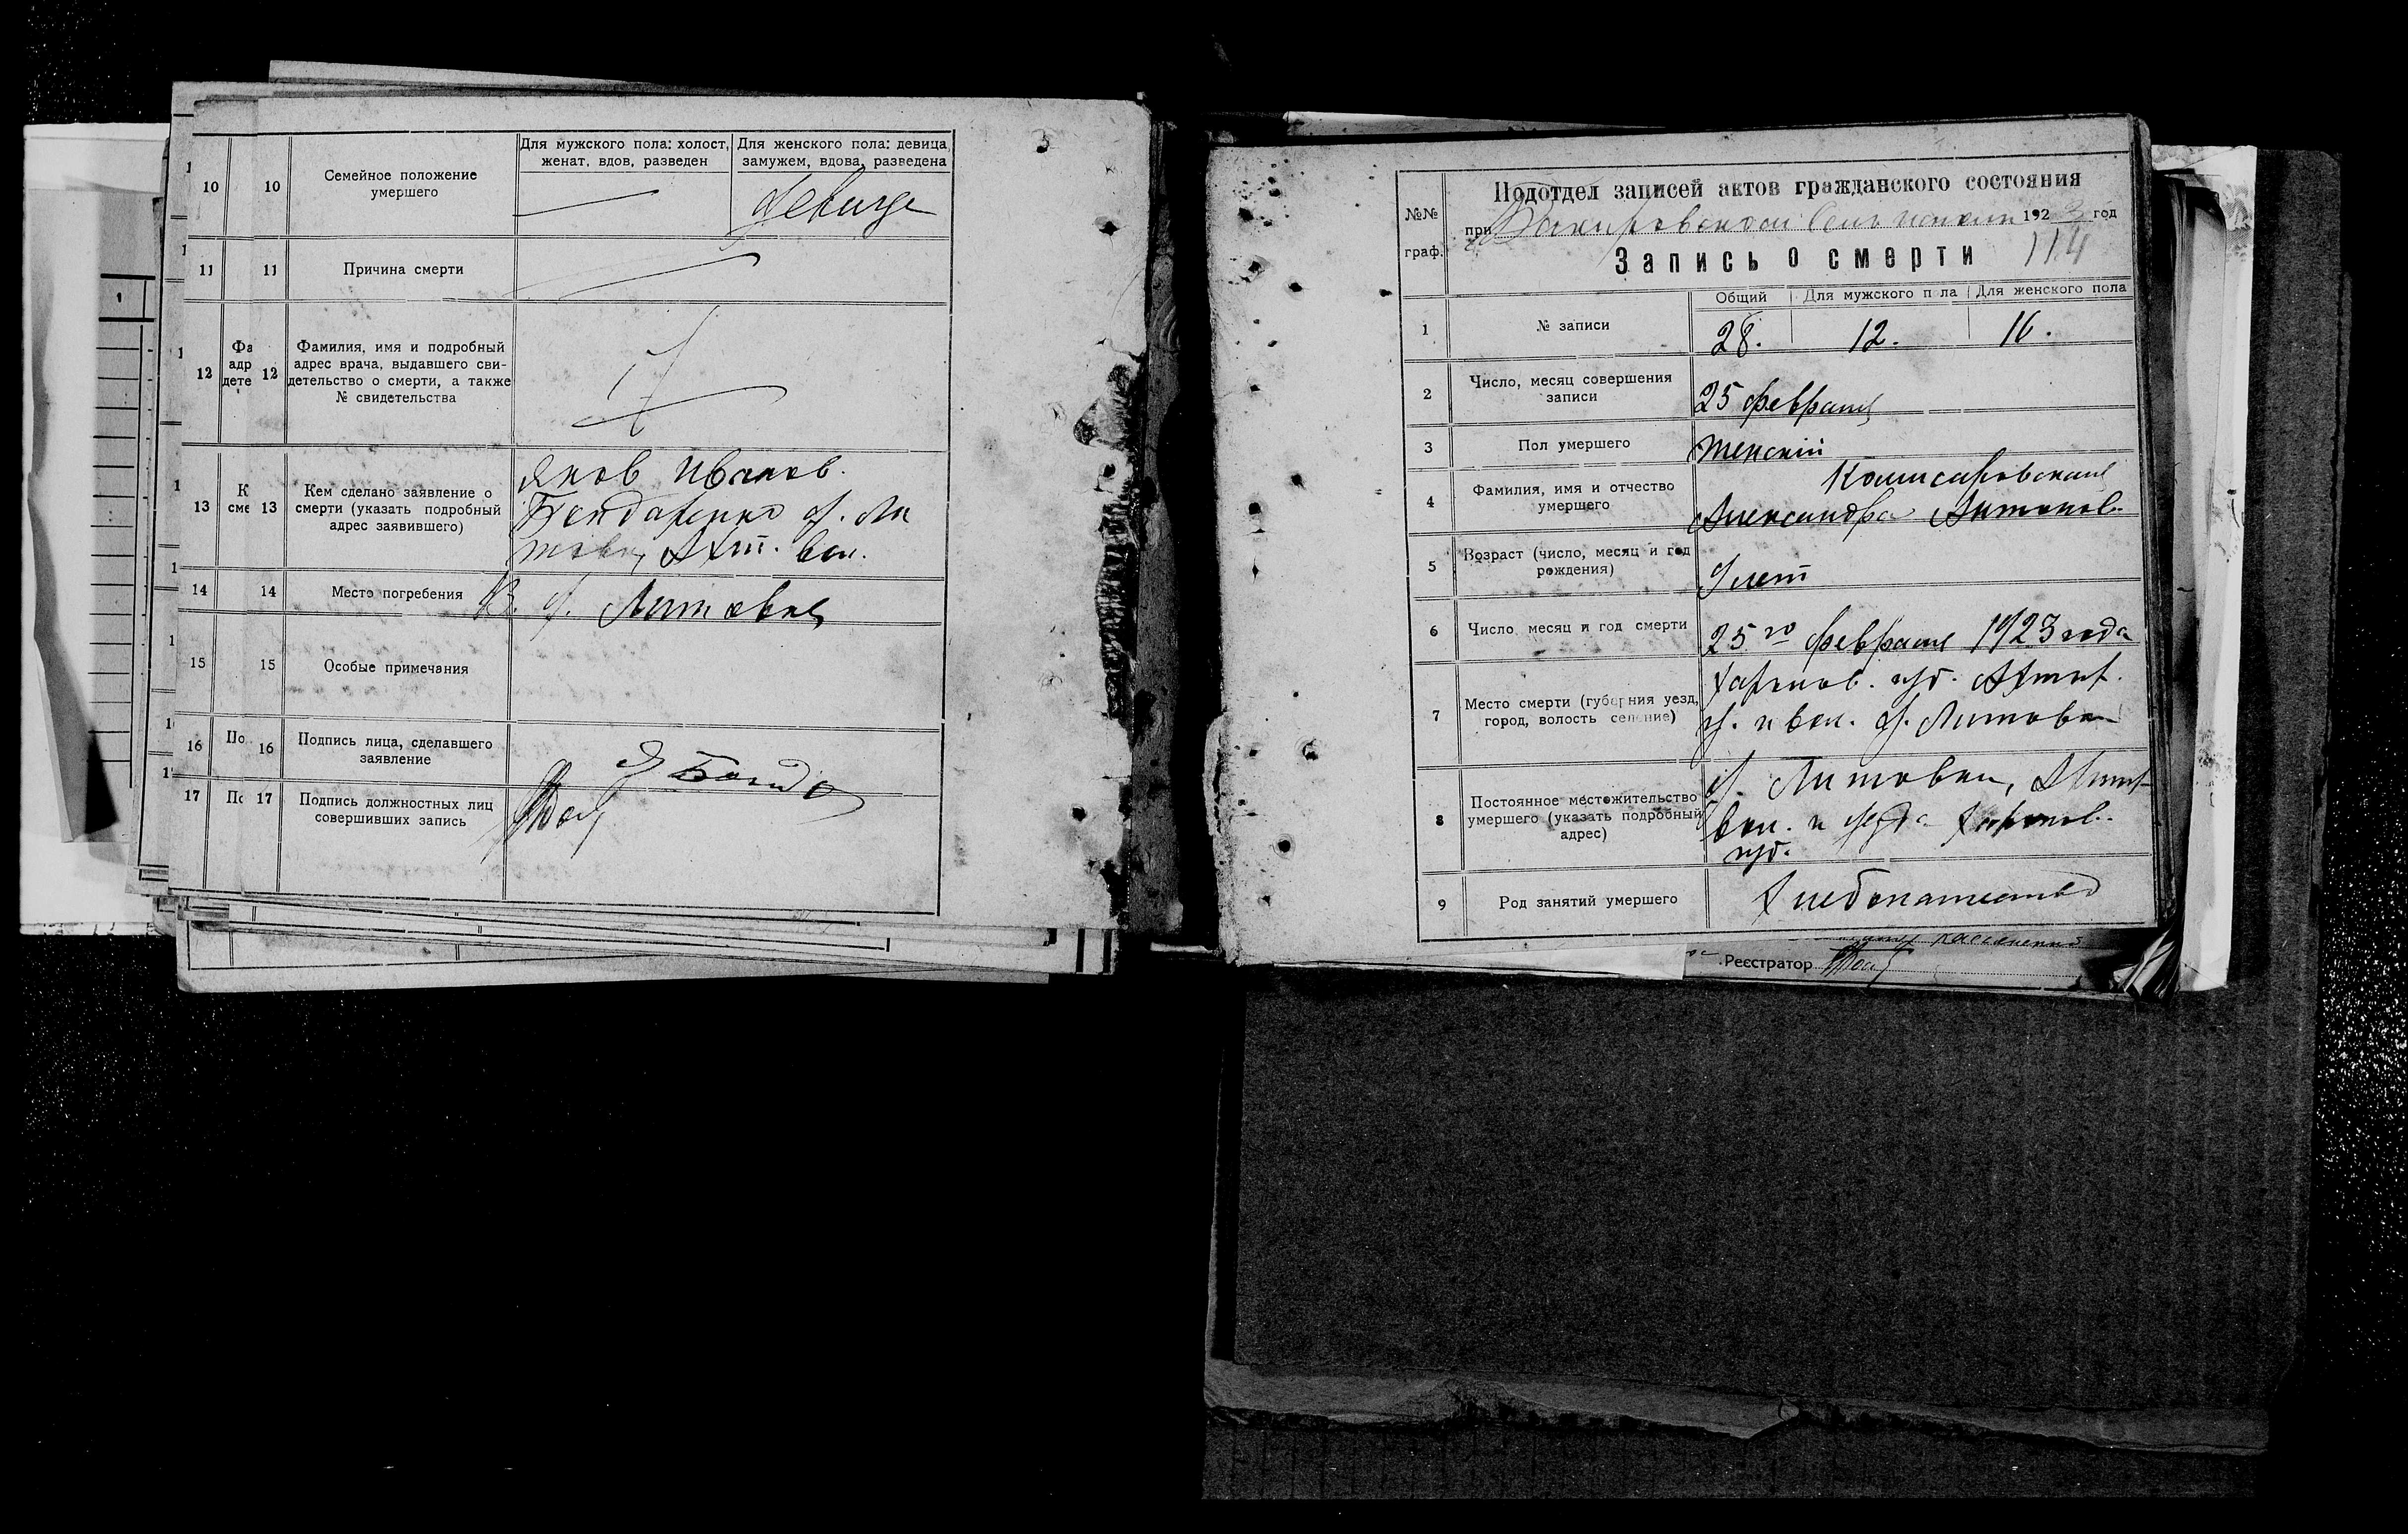 10
10
Семейное положение
умершего
Для мужского пола: холост,
женат, вдов, разведен
Для женского пола: девица,
замужем, вдова, разведена
девица
11
11
Причина смерти
12
12
Фа
адр
дете
Фамилия, имя и подробный
адрес врача, выдавшего сви-
детельство о смерти, а также
№ свидетельства
13
К
сме
13
Кем сделано заявление о
смерти (указать подробный
адрес заявившего)
Яков Иванов.
Бондаренко с. Ли
товки, Ахт. вол.
14
14
Место погребения
В с. Литовке
15
15
Особые примечания
16
По
16
Подпись лица, сделавшего
заявление
Я Бонда
17
По
17
Подпись должностных лиц
совершивших запись
№№
граф.
Подотдел записей актов гражданского состояния
при 1923 год
Запись о смерти 114
Общий Для мужского пола Для женского пола
1
№ записи
28. 12. 16.
2
Число, месяц совершения
записи
25 февраля
3
Пол умершего
Женский
4
Фамилия, имя и отчество
умершего
Комисаровская
Александра Антонов.
5
Возраст (число, месяц и год
рождения)
лет
6
Число месяц и год смерти
25го февраля 1923 года
7
Место смерти (губерния уезд,
город, волость селение)
Харьков. губ. Ахтыр.
у. и вол. с. Литовка
8
Постоянное местожительство
умершего (указать подробный
адрес)
с. Литовки, Ахтыр
вол. и уезда Харьков.
губ.
9
Род занятий умершего
Хлебопашество
Реєстратор